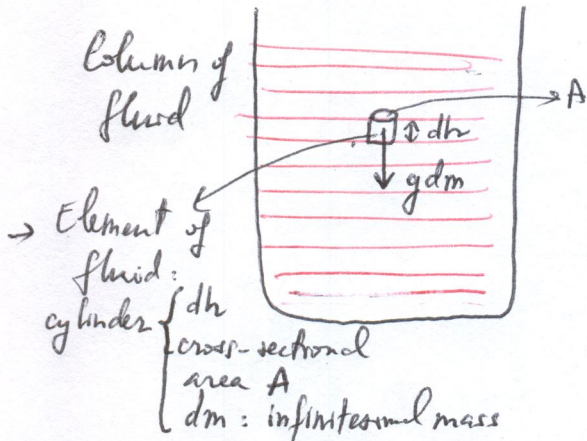 Column of
fluid
A
dh
gdm
→ Element of
fluid:
cylinder { dh
cross-sectional
area A
dm : infinitesimal mass